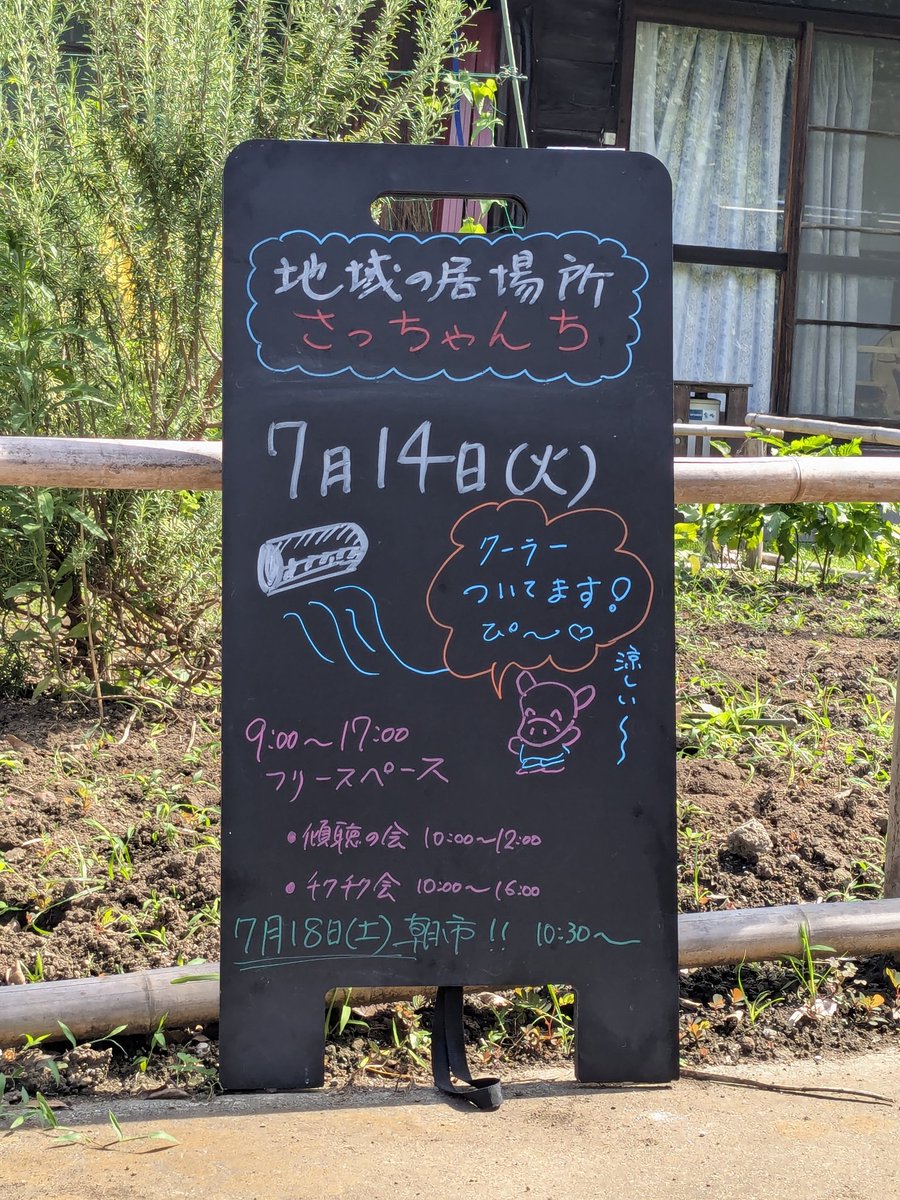 地域の居場所
さっちゃんち
7月14日(火)
クーラー
ついてます!
ぴ〜♡
涼しい〜
9:00〜17:00
フリースペース
• 傾聴の会 10:00〜12:00
• チクチク会 10:00〜16:00
7月18日(土) 朝市!! 10:30〜